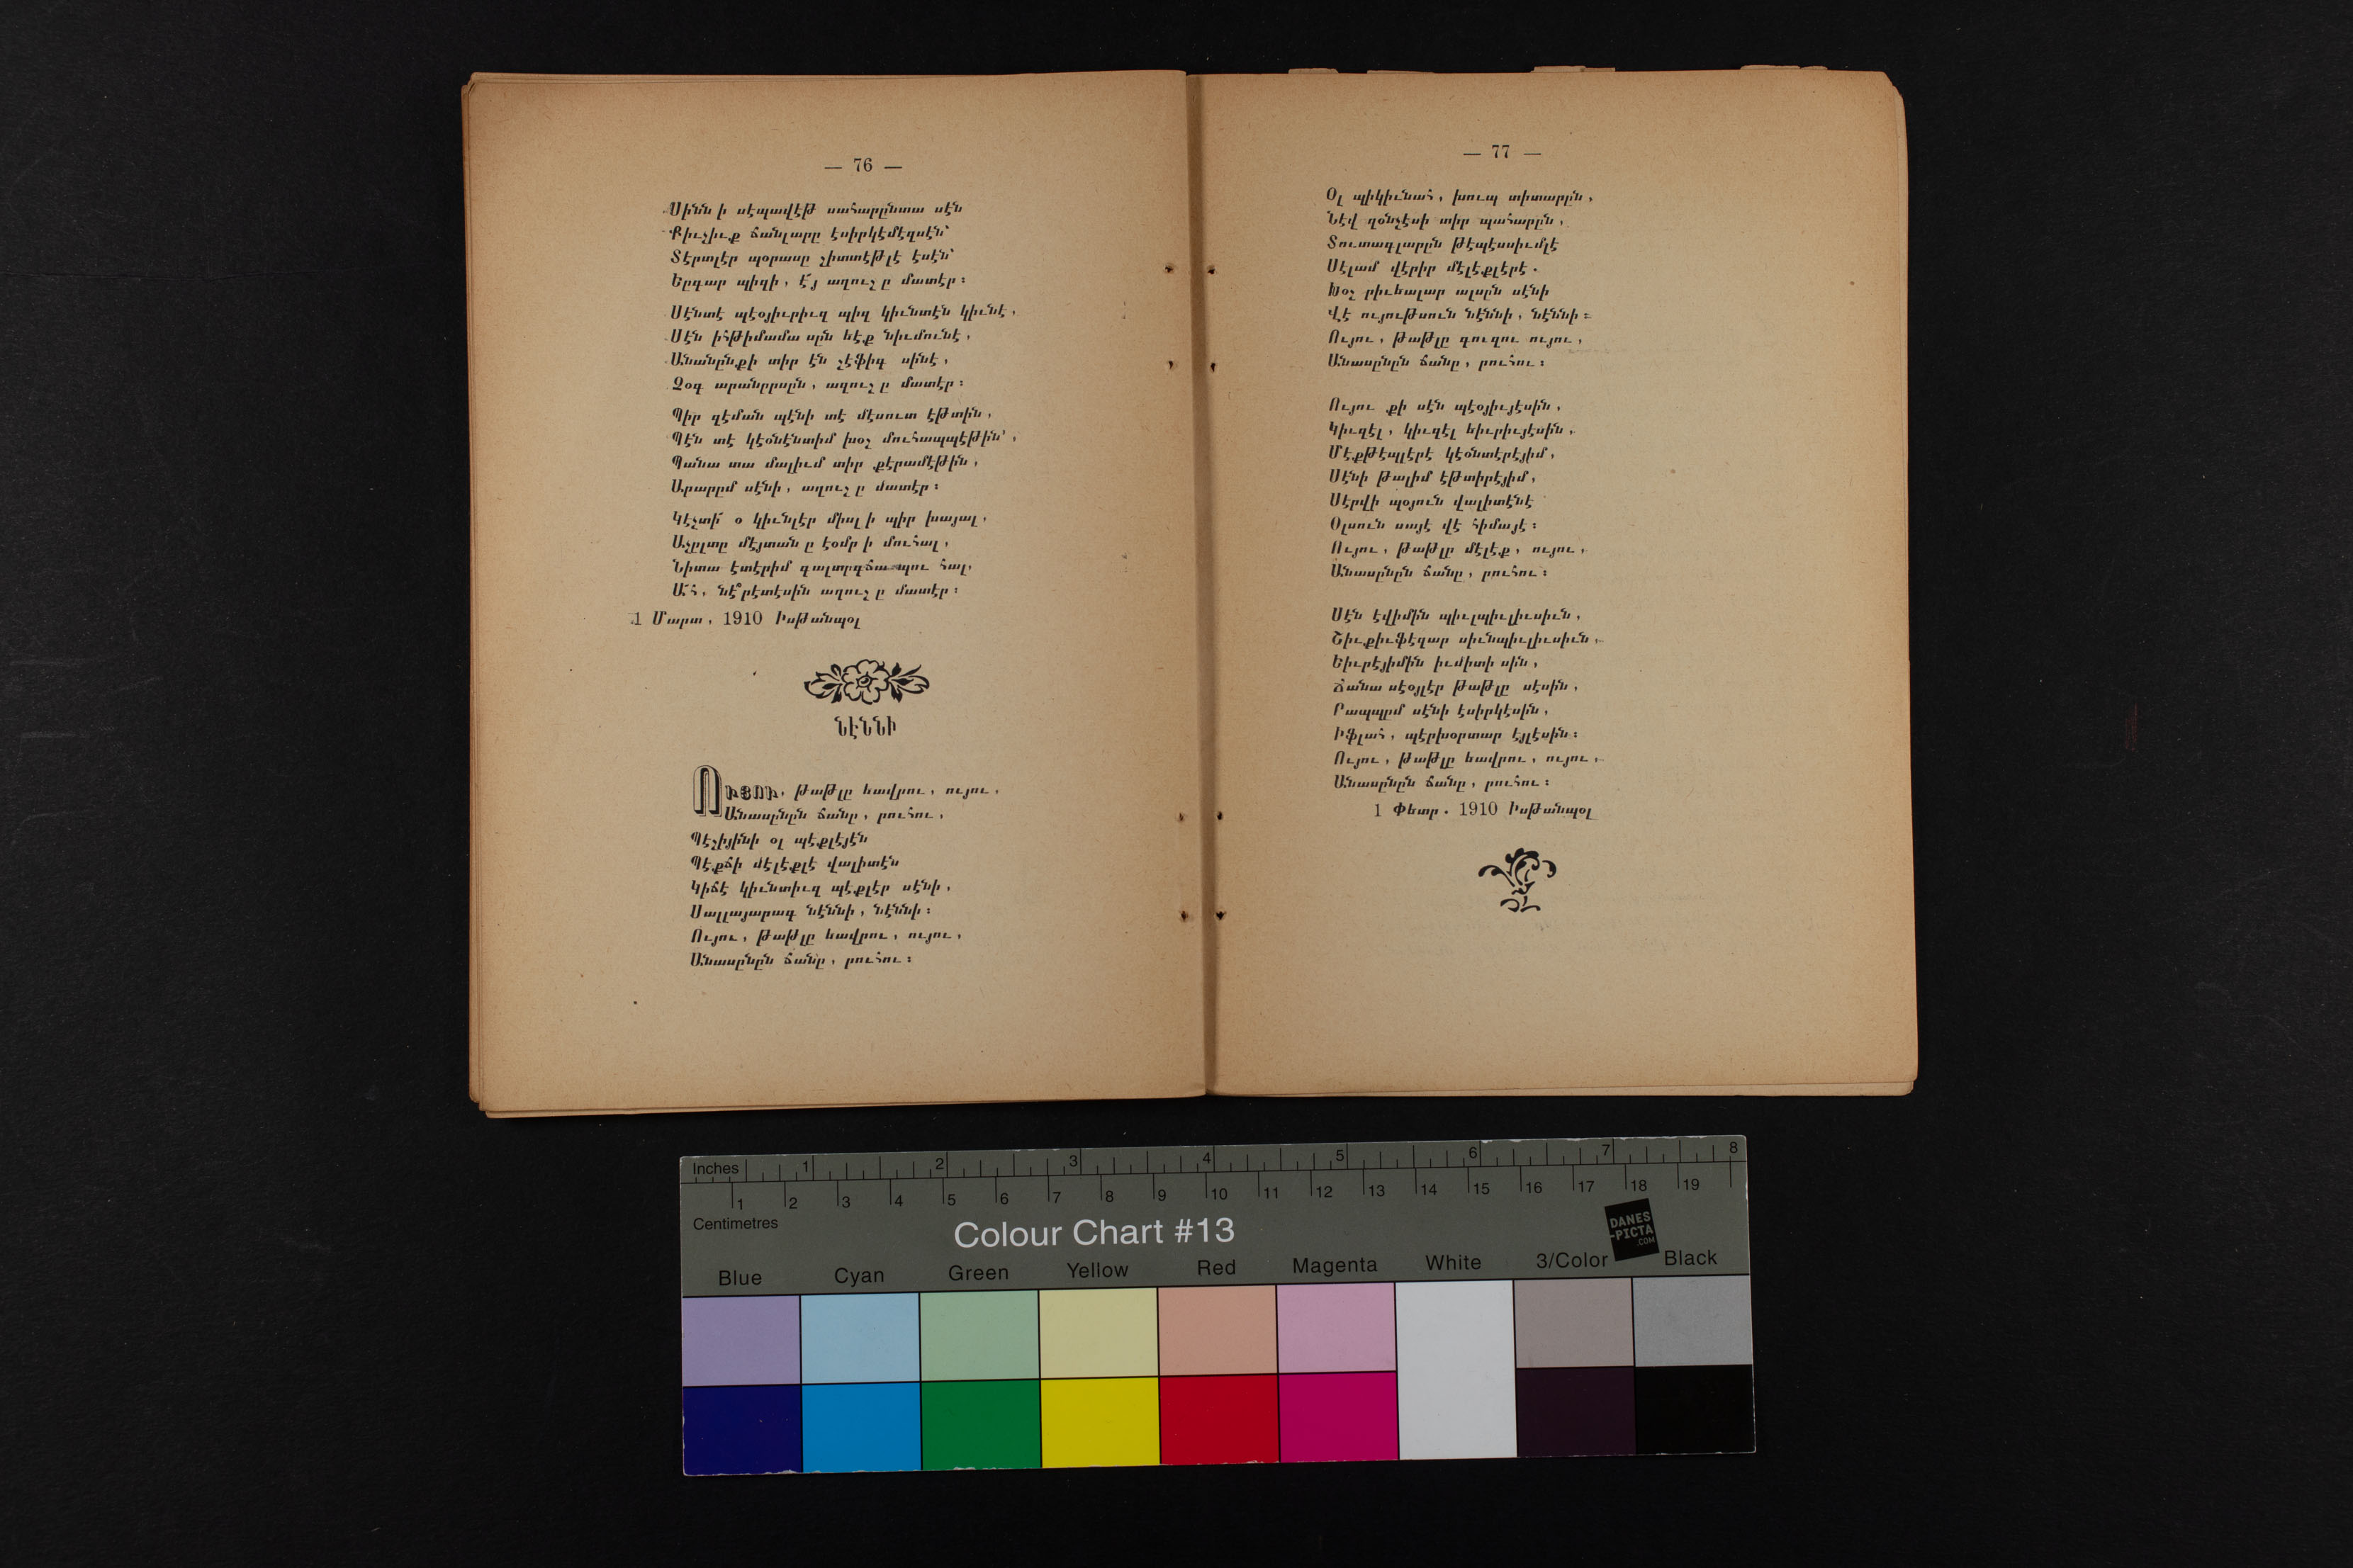 — 76 —
Սինն ի սէպավէթ սահարընտա սէն
Քիւչիւք ճանլարը էսիրկէմէզսէն՝
Տէրտլէր պօրասը չիտտէթլէ էսէն՝
Եըգար պիզի, է՜յ աղուչ ը մատէր։
Սէնտէ պէօյիւրիւզ պիզ կիւնտէն կիւնէ,
Սէն իհթիմամա սըն եէք նիւմունէ,
Անանընքի տիր էն շէֆիգ սինէ,
Չօգ արանըրսըն, աղուչ ը մատէր։
Պիր զէման պէնի տէ մէսուտ էթտին,
Պէն տէ կէօնէնտիմ խօշ մուհապպէթին՝,
Պանա տա մալիւմ տիր քէրամէթին,
Արարըմ սէնի, աղուչ ը մատէր։
Կէչտի՜ օ կիւնլէր միսլ ի պիր խայալ,
Աչըլտը մէյտան ը էօմր ի մուհալ,
Նիտա էտէրիմ գալտըգճա պու հալ,
Ա՜հ, նէ՞րէտէսին աղուչ ը մատէր։
1 Մարտ, 1910 Իսթանպօլ
ՆԷՆՆԻ
ՈՒՅՈՒ, թաթլը եավրու, ույու,
Անասընըն ճանը, րուհու,
Պէշիյինի օլ պէքլէյէն
Պէքճի մէլէքլէ վալիտէն
Կիճէ կիւնտիւզ պէքլէր սէնի,
Սալլայարագ նէննի, նէննի։
Ույու, թաթլը եավրու, ույու,
Անասընըն ճանը, րուհու։
— 77 —
Օլ պիկիւնահ, խուպ տիտարըն,
Նէվ ղօնչէսի տիր պահարըն,
Տուտագլարըն թէպէսսիւմլէ
Սէլամ վէրիր մէլէքլէրէ.
Խօշ րիւեալար ալսըն սէնի
Վէ ույութսուն նէննի, նէննի։
Ույու, թաթլը գուզու ույու,
Անասընըն ճանը, րուհու։
Ույու քի սէն պէօյիւյէսին,
Կիւզէլ, կիւզէլ եիւրիւյէսին,
Մէքթէպլէրէ կէօնտէրէյիմ,
Սէնի թալիմ էթտիրէյիմ,
Սէրվի պօյուն վալիտէնէ
Օլսուն սայէ վէ հիմայէ։
Ույու, թաթլը մէլէք, ույու,
Անասընըն ճանը, րուհու։
Սէն էվիմին պիւլպիւլիւսիւն,
Շիւքիւֆէզար սիւնպիւլիւսիւն,
Եիւրէյիմին իւմիտի սին,
Ճանա սէօյլէր թաթլը սէսին,
Րապպըմ սէնի էսիրկէսին,
Իֆլահ, պէրխօրտար էյլէսին։
Ույու, թաթլը եավրու, ույու,
Անասընըն ճանը, րուհու։
1 Փետր. 1910 Իսթանպօլ
Inches 1 2 3 4 5 6 7 8
1 2 3 4 5 6 7 8 9 10 11 12 13 14 15 16 17 18 19
Centimetres
Colour Chart #13
DANES
-PICTA
.COM
Blue Cyan Green Yellow Red Magenta White 3/Color Black